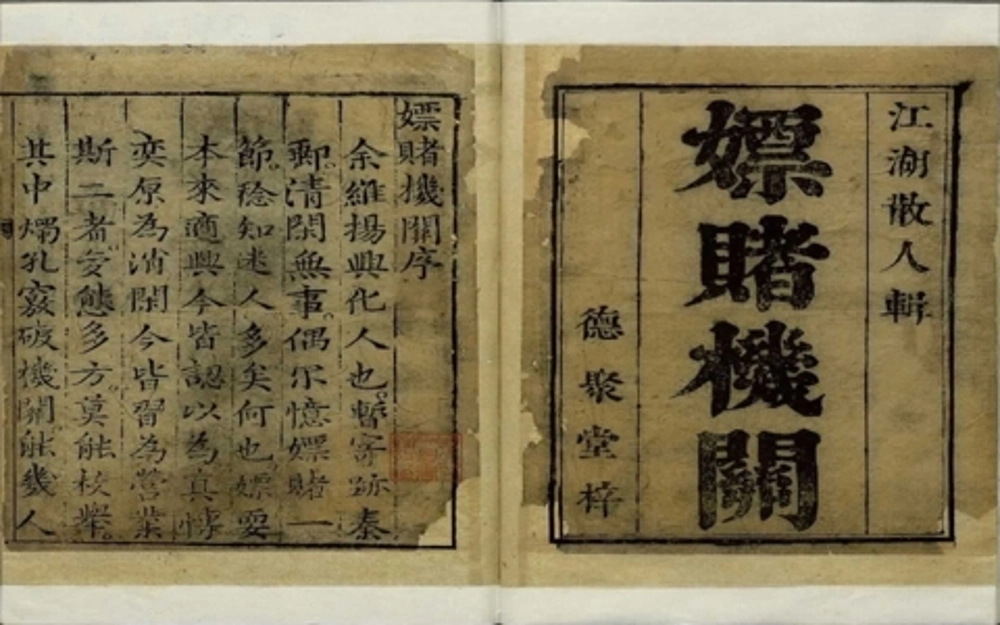 江湖散人輯
嫖賭機關
德聚堂梓
嫖賭機關序
余維揚興化人也暫寄跡秦
郵清閑無事偶尔憶嫖賭一
節稔知迷人多矣何也嫖耍
本來適興今皆認以為真悖
奕原為消閑今皆習為營業
斯二者変態多方莫能枚舉
其中燭孔竅破機關能幾人